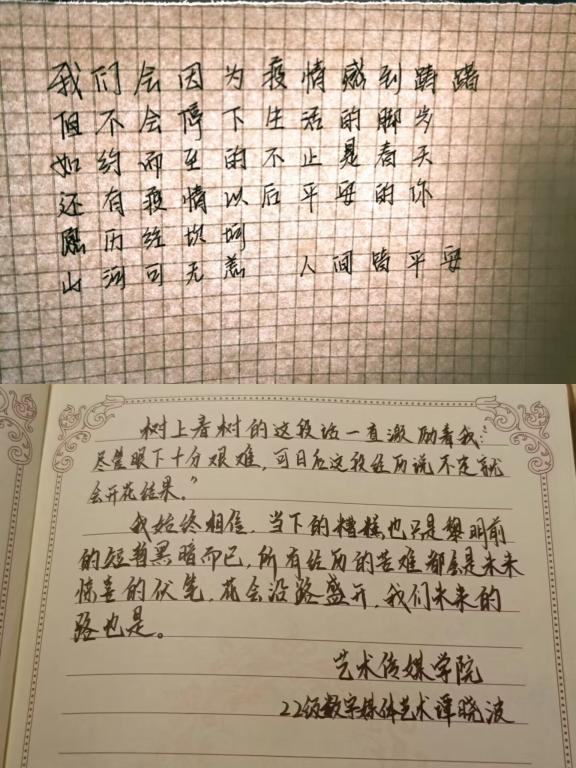 我们会因为疫情感到踌躇
但不会停下生活的脚步
如约而至的不止是春天
还有疫情以后平安的你
愿历经坎坷
山河可无恙 人间皆平安
树上春树的这段话一直激励着我:“
尽管眼下十分艰难，可日后这段经历说不定就
会开花结果。”
我始终相信，当下的糟糕也只是黎明前
的短暂黑暗而已，所有经历的苦难都会是未来
惊喜的伏笔，花会沿路盛开，我们未来的
路也是。
艺术传媒学院
22级数字媒体艺术谭晓波